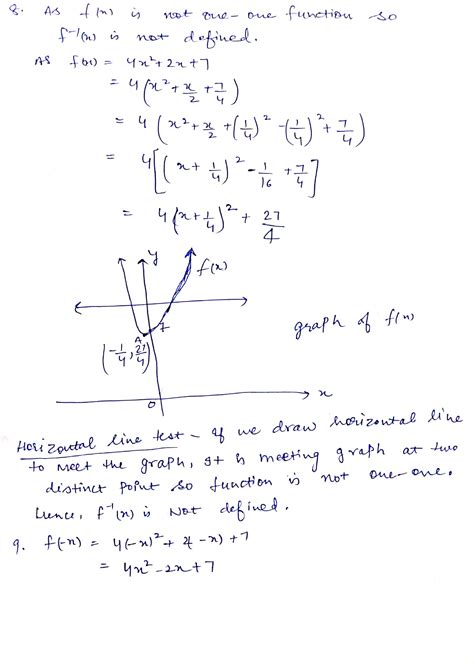 8. As f(x) is not one-one function so
f⁻¹(x) is not defined.
As f(x) = 4x²+2x+7
= 4(x²+x/2+7/4)
= 4(x²+x/2+(1/4)²-(1/4)²+7/4)
= 4[(x+1/4)²-1/16+7/4]
= 4(x+1/4)²+27/4
y
f(x)
graph of f(x)
A
7
(-1/4, 27/4)
x
0
Horizontal line test - If we draw horizontal line
to meet the graph, it is meeting graph at two
distinct point so function is not one-one.
Hence, f⁻¹(x) is Not defined.
9. f(-x) = 4(-x)²+2(-x)+7
= 4x²-2x+7